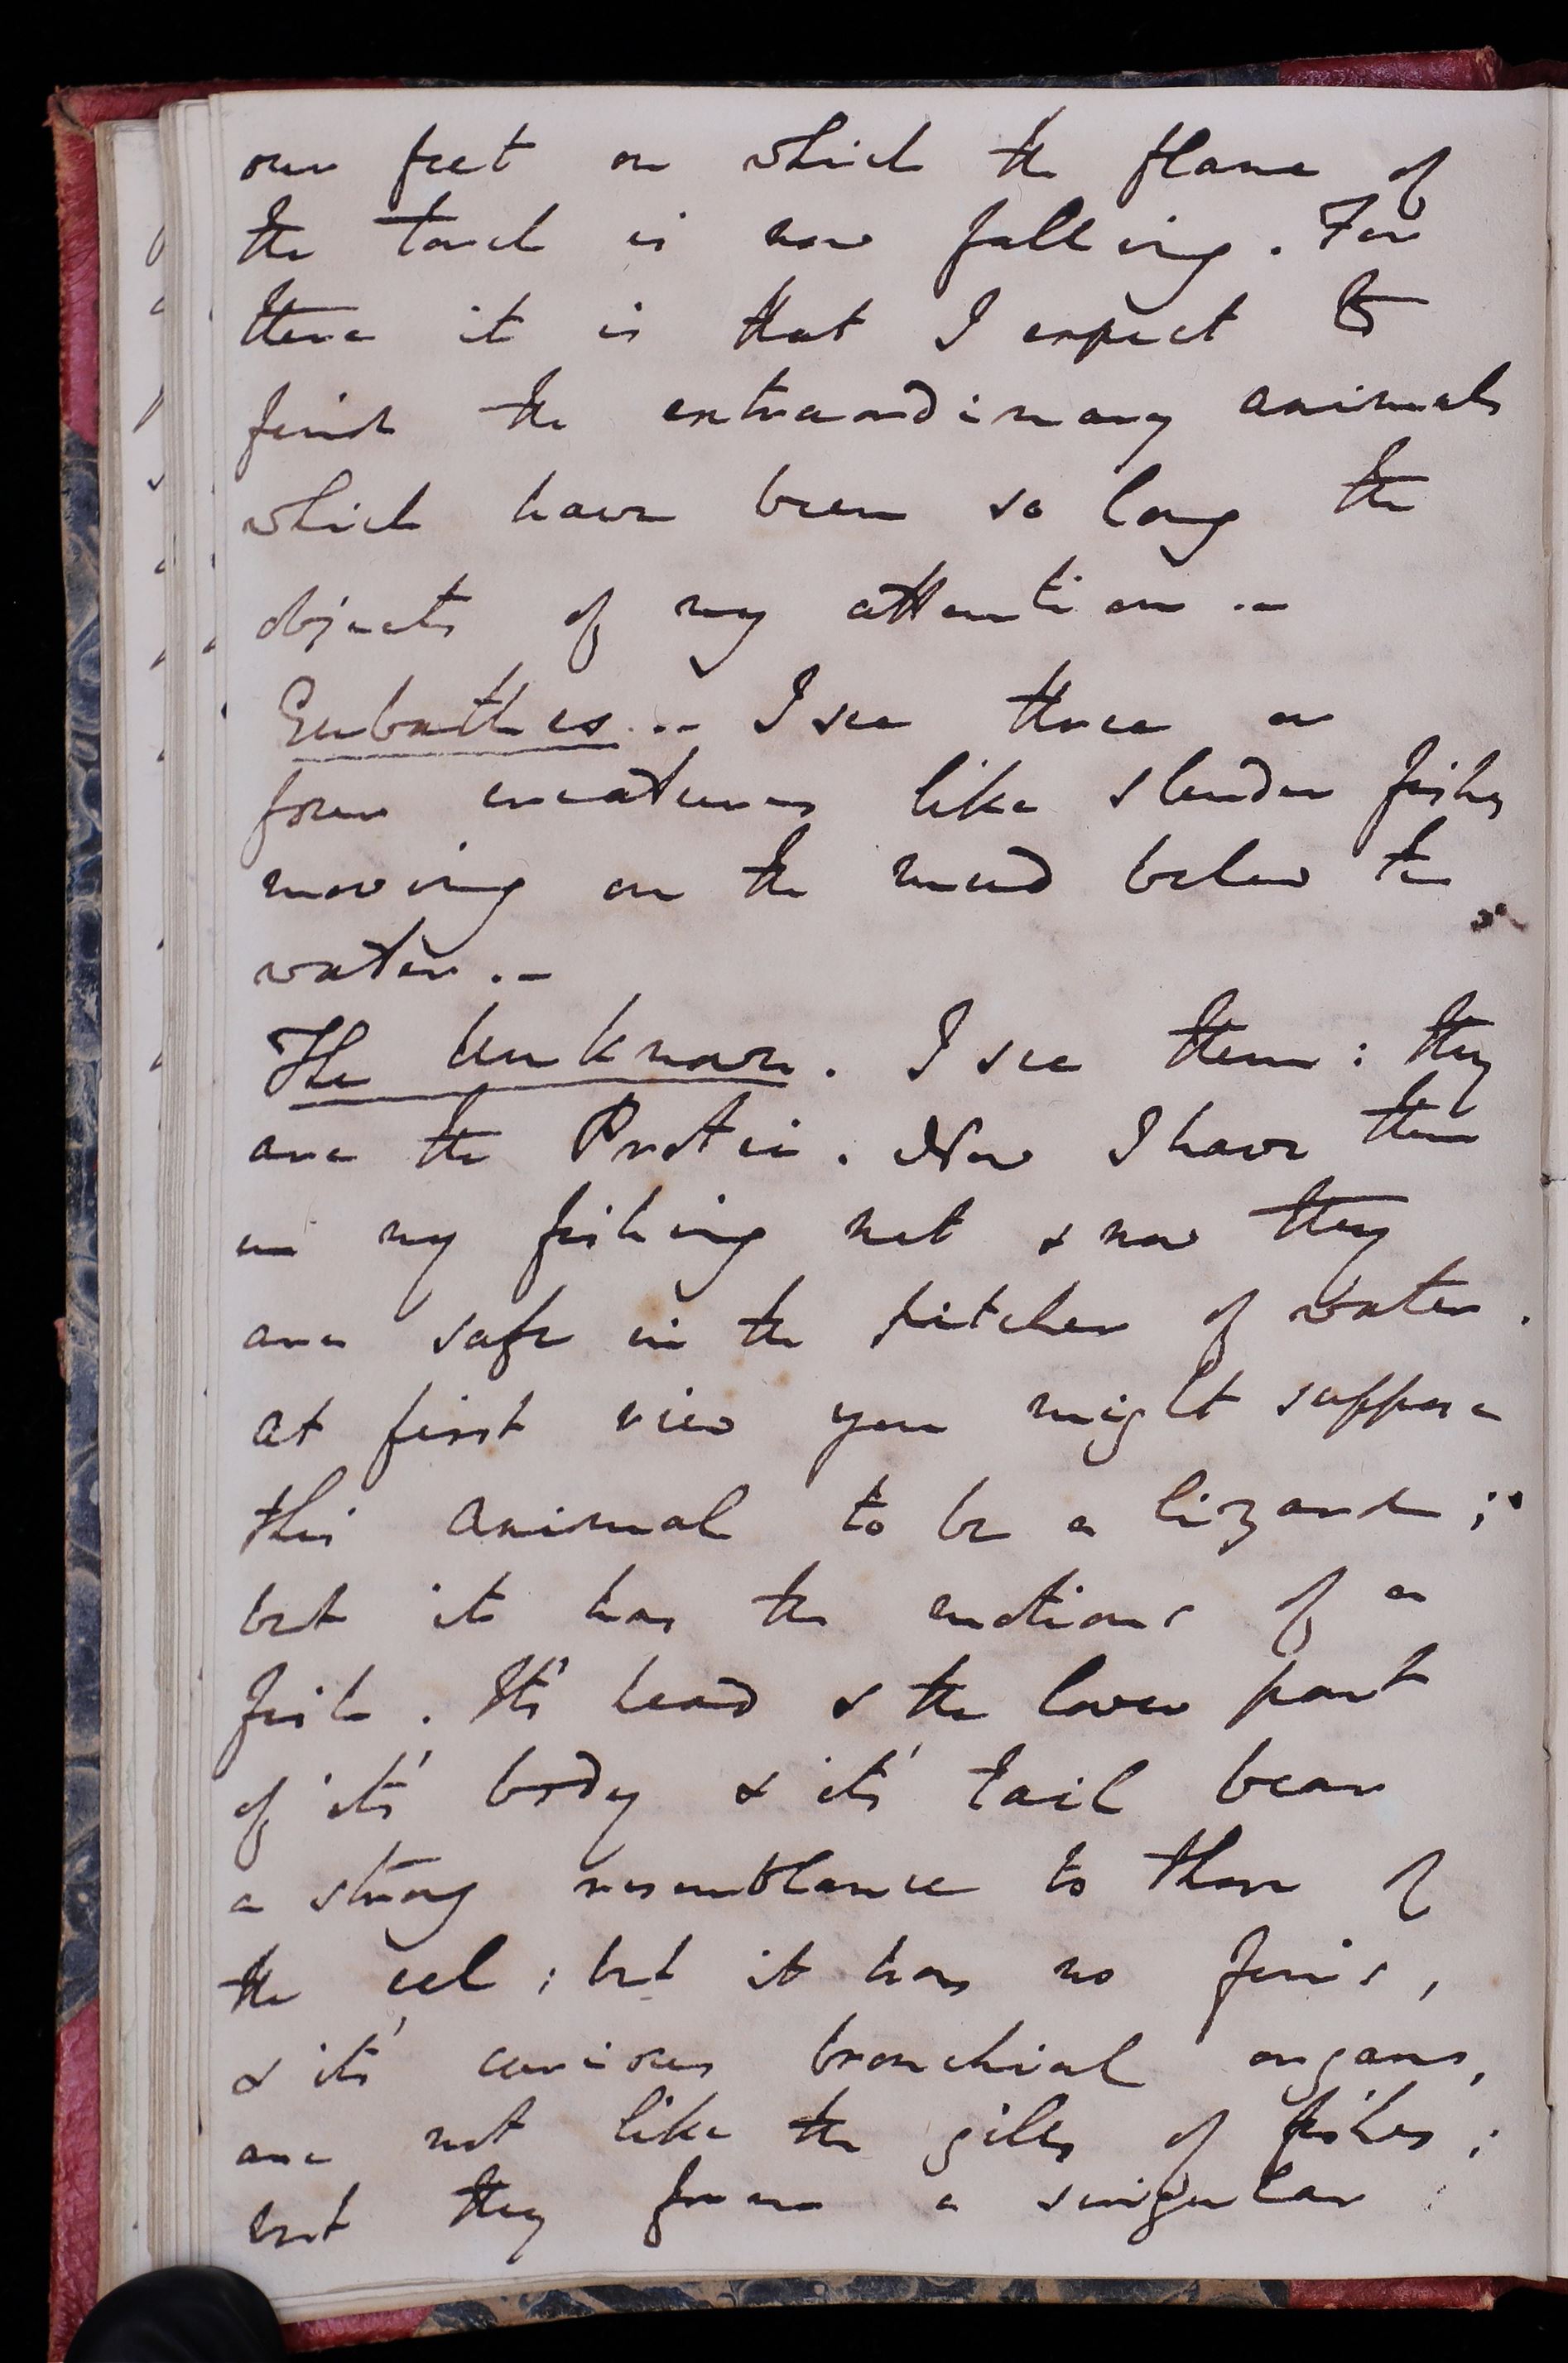 our feet on which the flame of
the torch is now falling. For
there it is that I expect to
find the extraordinary animals
which have been so long the
objects of my attention.-
Eubathes.- I see three or
four creatures like slender fishes
moving on the mud below the
water.-
The Unknown. I see them: they
are the Protei. Now I have them
in my fishing net & now they
are safe in the pitcher of water.
at first view you might suppose
this animal to be a lizard;
but it has the motions of a
fish. It's head & the lower part
of it's body & it's tail bear
a strong resemblance to those of
the eel; but it has no fins,
& it's curious bronchial organs,
are not like the gills of fishes;
but they form a singular